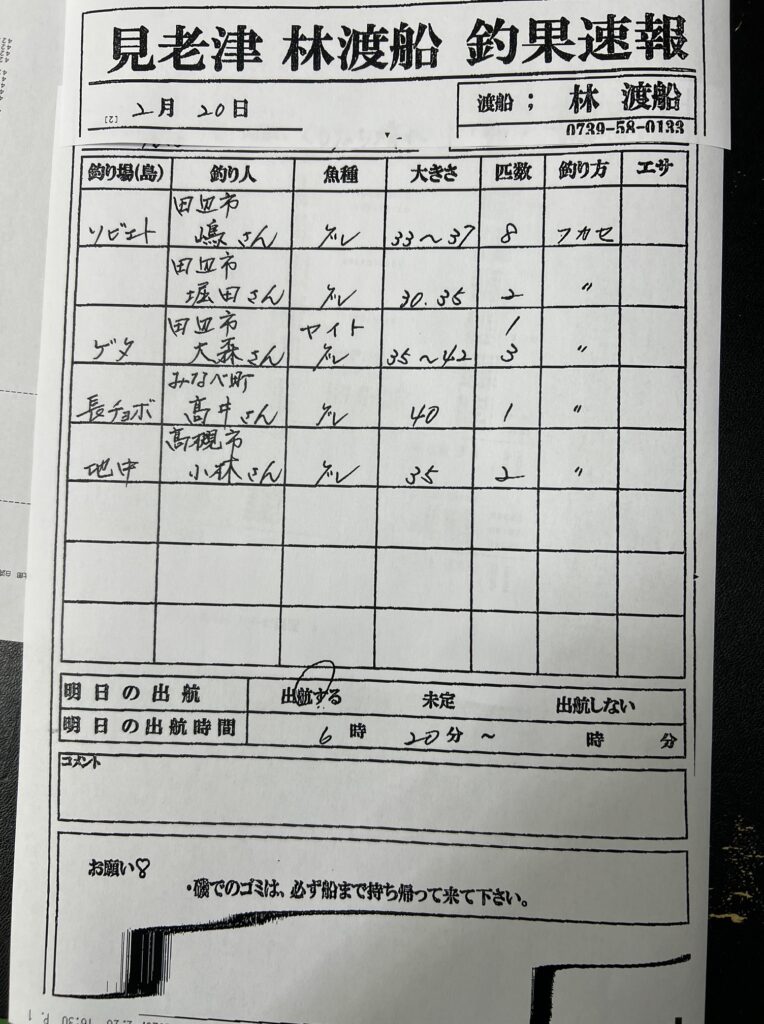 見老津 林渡船 釣果速報
[2] 2月 20日
渡船 ; 林 渡船
0739-58-0133
釣り場(島) 釣り人 魚種 大きさ 匹数 釣り方 エサ
田辺市
ソビエト 嶋さん グレ 33〜37 8 フカセ
田辺市
堀田さん グレ 30.35 2 〃
田辺市 ヤイト 1
ゲタ 大森さん グレ 35〜42 3 〃
みなべ町
長チョボ 髙井さん グレ 40 1 〃
高槻市
地中 小林さん グレ 35 2 〃
明日の出航 出航する 未定 出航しない
明日の出航時間 6時 20分 〜 時 分
コメント
お願い♡
・磯でのゴミは、必ず船まで持ち帰って来て下さい。